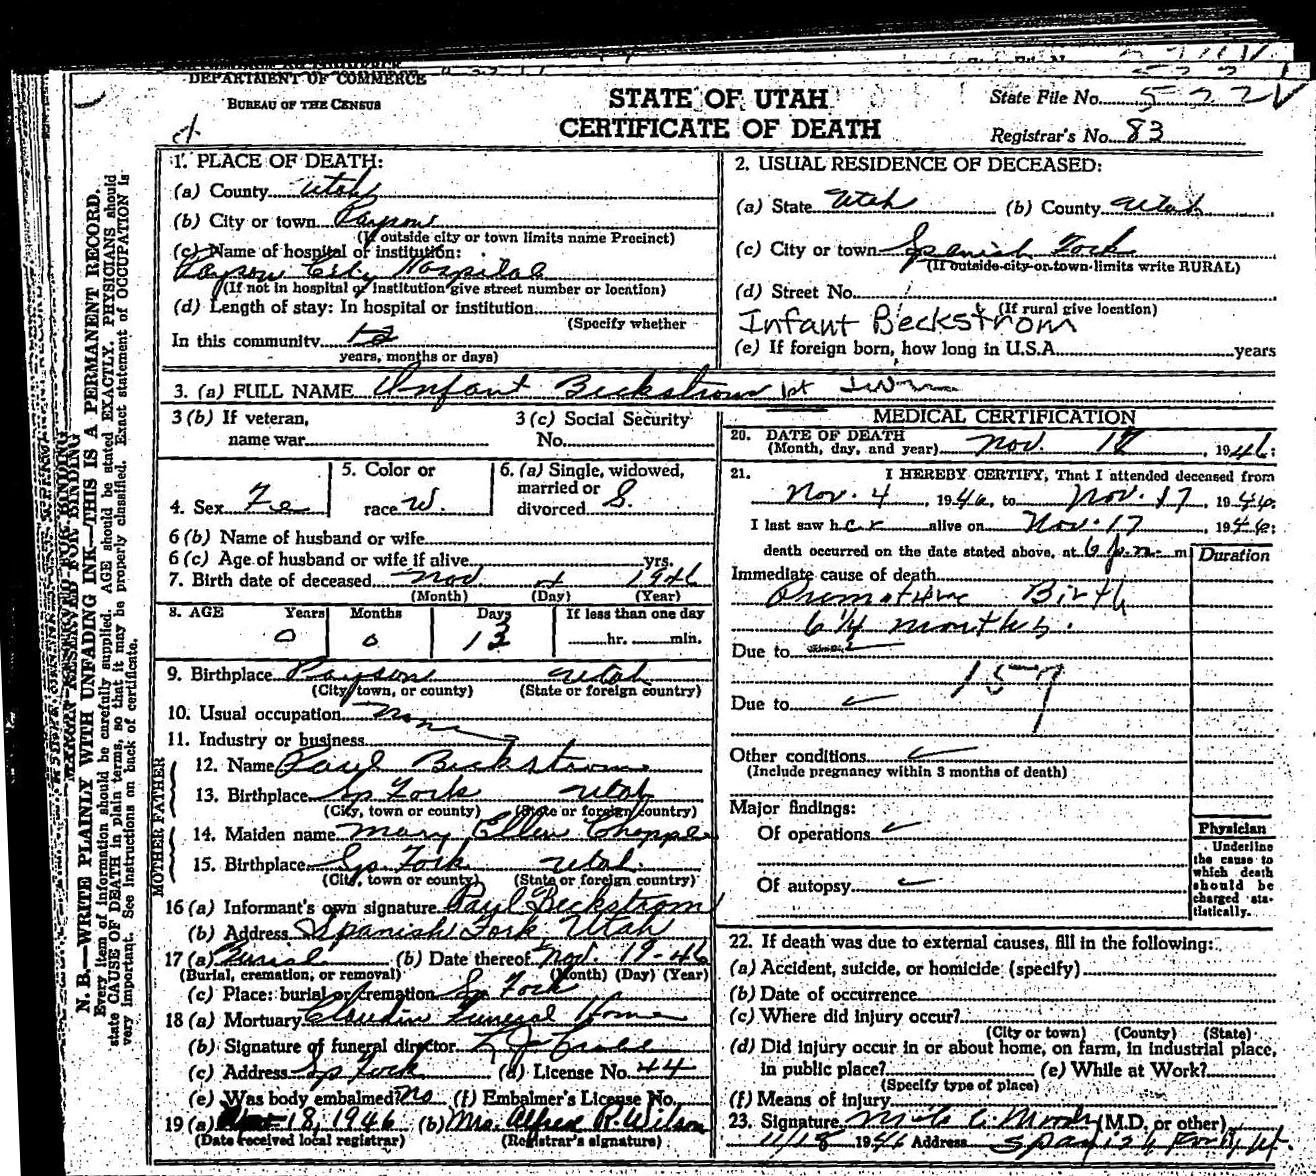 DEPARTMENT OF COMMERCE
BUREAU OF THE CENSUS
STATE OF UTAH
CERTIFICATE OF DEATH
State File No. 522
Registrar's No. 83
N. B.—WRITE PLAINLY WITH UNFADING INK—THIS IS A PERMANENT RECORD.
Every item of information should be carefully supplied. AGE should be stated EXACTLY. PHYSICIANS should
state CAUSE OF DEATH in plain terms, so that it may be properly classified. Exact statement of OCCUPATION is
very important. See instructions on back of certificate.
MARGIN RESERVED FOR BINDING
1. PLACE OF DEATH:
(a) County Utah
(b) City or town Payson
(If outside city or town limits name Precinct)
(c) Name of hospital or institution:
Payson City Hospital
(If not in hospital or institution give street number or location)
(d) Length of stay: In hospital or institution
(Specify whether
In this community
years, months or days)
2. USUAL RESIDENCE OF DECEASED:
(a) State Utah (b) County Utah
(c) City or town Spanish Fork
(If outside city or town limits write RURAL)
(d) Street No.
(If rural give location)
Infant Beckstrom
(e) If foreign born, how long in U.S.A. years
3. (a) FULL NAME Infant Beckstrom 1st Twin
3 (b) If veteran,
name war
3 (c) Social Security
No.
4. Sex Fe
5. Color or
race W.
6. (a) Single, widowed,
married or
divorced S.
6 (b) Name of husband or wife
6 (c) Age of husband or wife if alive yrs.
7. Birth date of deceased Nov 4 1946
(Month) (Day) (Year)
8. AGE Years Months Days If less than one day
0 0 13 hr. min.
9. Birthplace Payson Utah
(City, town, or county) (State or foreign country)
10. Usual occupation None
11. Industry or business
FATHER
12. Name Paul Beckstrom
13. Birthplace Sp Fork Utah
(City, town, or county) (State or foreign country)
MOTHER
14. Maiden name Mary Ellen Chapple
15. Birthplace Sp. Fork Utah.
(City, town or county) (State or foreign country)
16 (a) Informant's own signature Paul Beckstrom
(b) Address Spanish Fork, Utah
17 (a) Burial (b) Date thereof Nov. 19-46
(Burial, cremation, or removal) (Month) (Day) (Year)
(c) Place: burial or cremation Sp Fork
18 (a) Mortuary Claudin Funeral Home
(b) Signature of funeral director
(c) Address Sp Fork (d) License No. 44
(e) Was body embalmed? No (f) Embalmer's License No.
19 (a) 18, 1946 (b) Mrs. Alfred R. Wilson
(Date received local registrar) (Registrar's signature)
MEDICAL CERTIFICATION
20. DATE OF DEATH
(Month, day, and year) Nov. 17, 1946:
21. I HEREBY CERTIFY, That I attended deceased from
Nov. 4, 1946, to Nov. 17, 1946
I last saw her alive on Nov. 17, 1946:
death occurred on the date stated above, at 6 p.m. m
Duration
Immediate cause of death
Premature Birth
6 1/4 months.
Due to
159
Due to
Other conditions
(Include pregnancy within 3 months of death)
Major findings:
Of operations
Of autopsy
Physician
Underline
the cause to
which death
should be
charged sta-
tistically.
22. If death was due to external causes, fill in the following:
(a) Accident, suicide, or homicide (specify)
(b) Date of occurrence
(c) Where did injury occur?
(City or town) (County) (State)
(d) Did injury occur in or about home, on farm, in industrial place,
in public place? (e) While at Work?
(Specify type of place)
(f) Means of injury
23. Signature Moody (M.D. or other)
11/18 1946 Address Spanish Fork, Ut.